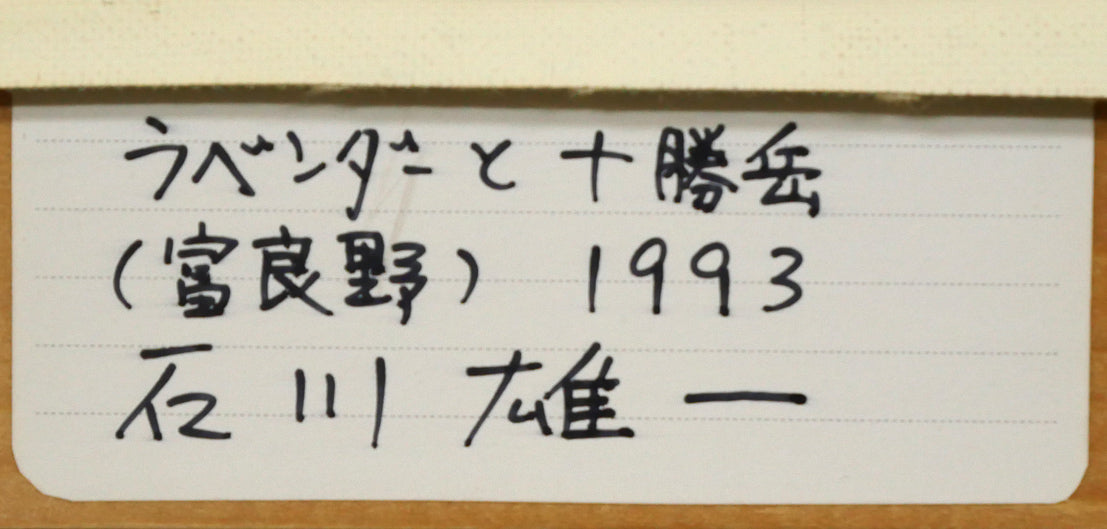 ラベンダーと十勝岳
(富良野) 1993
石川雄一